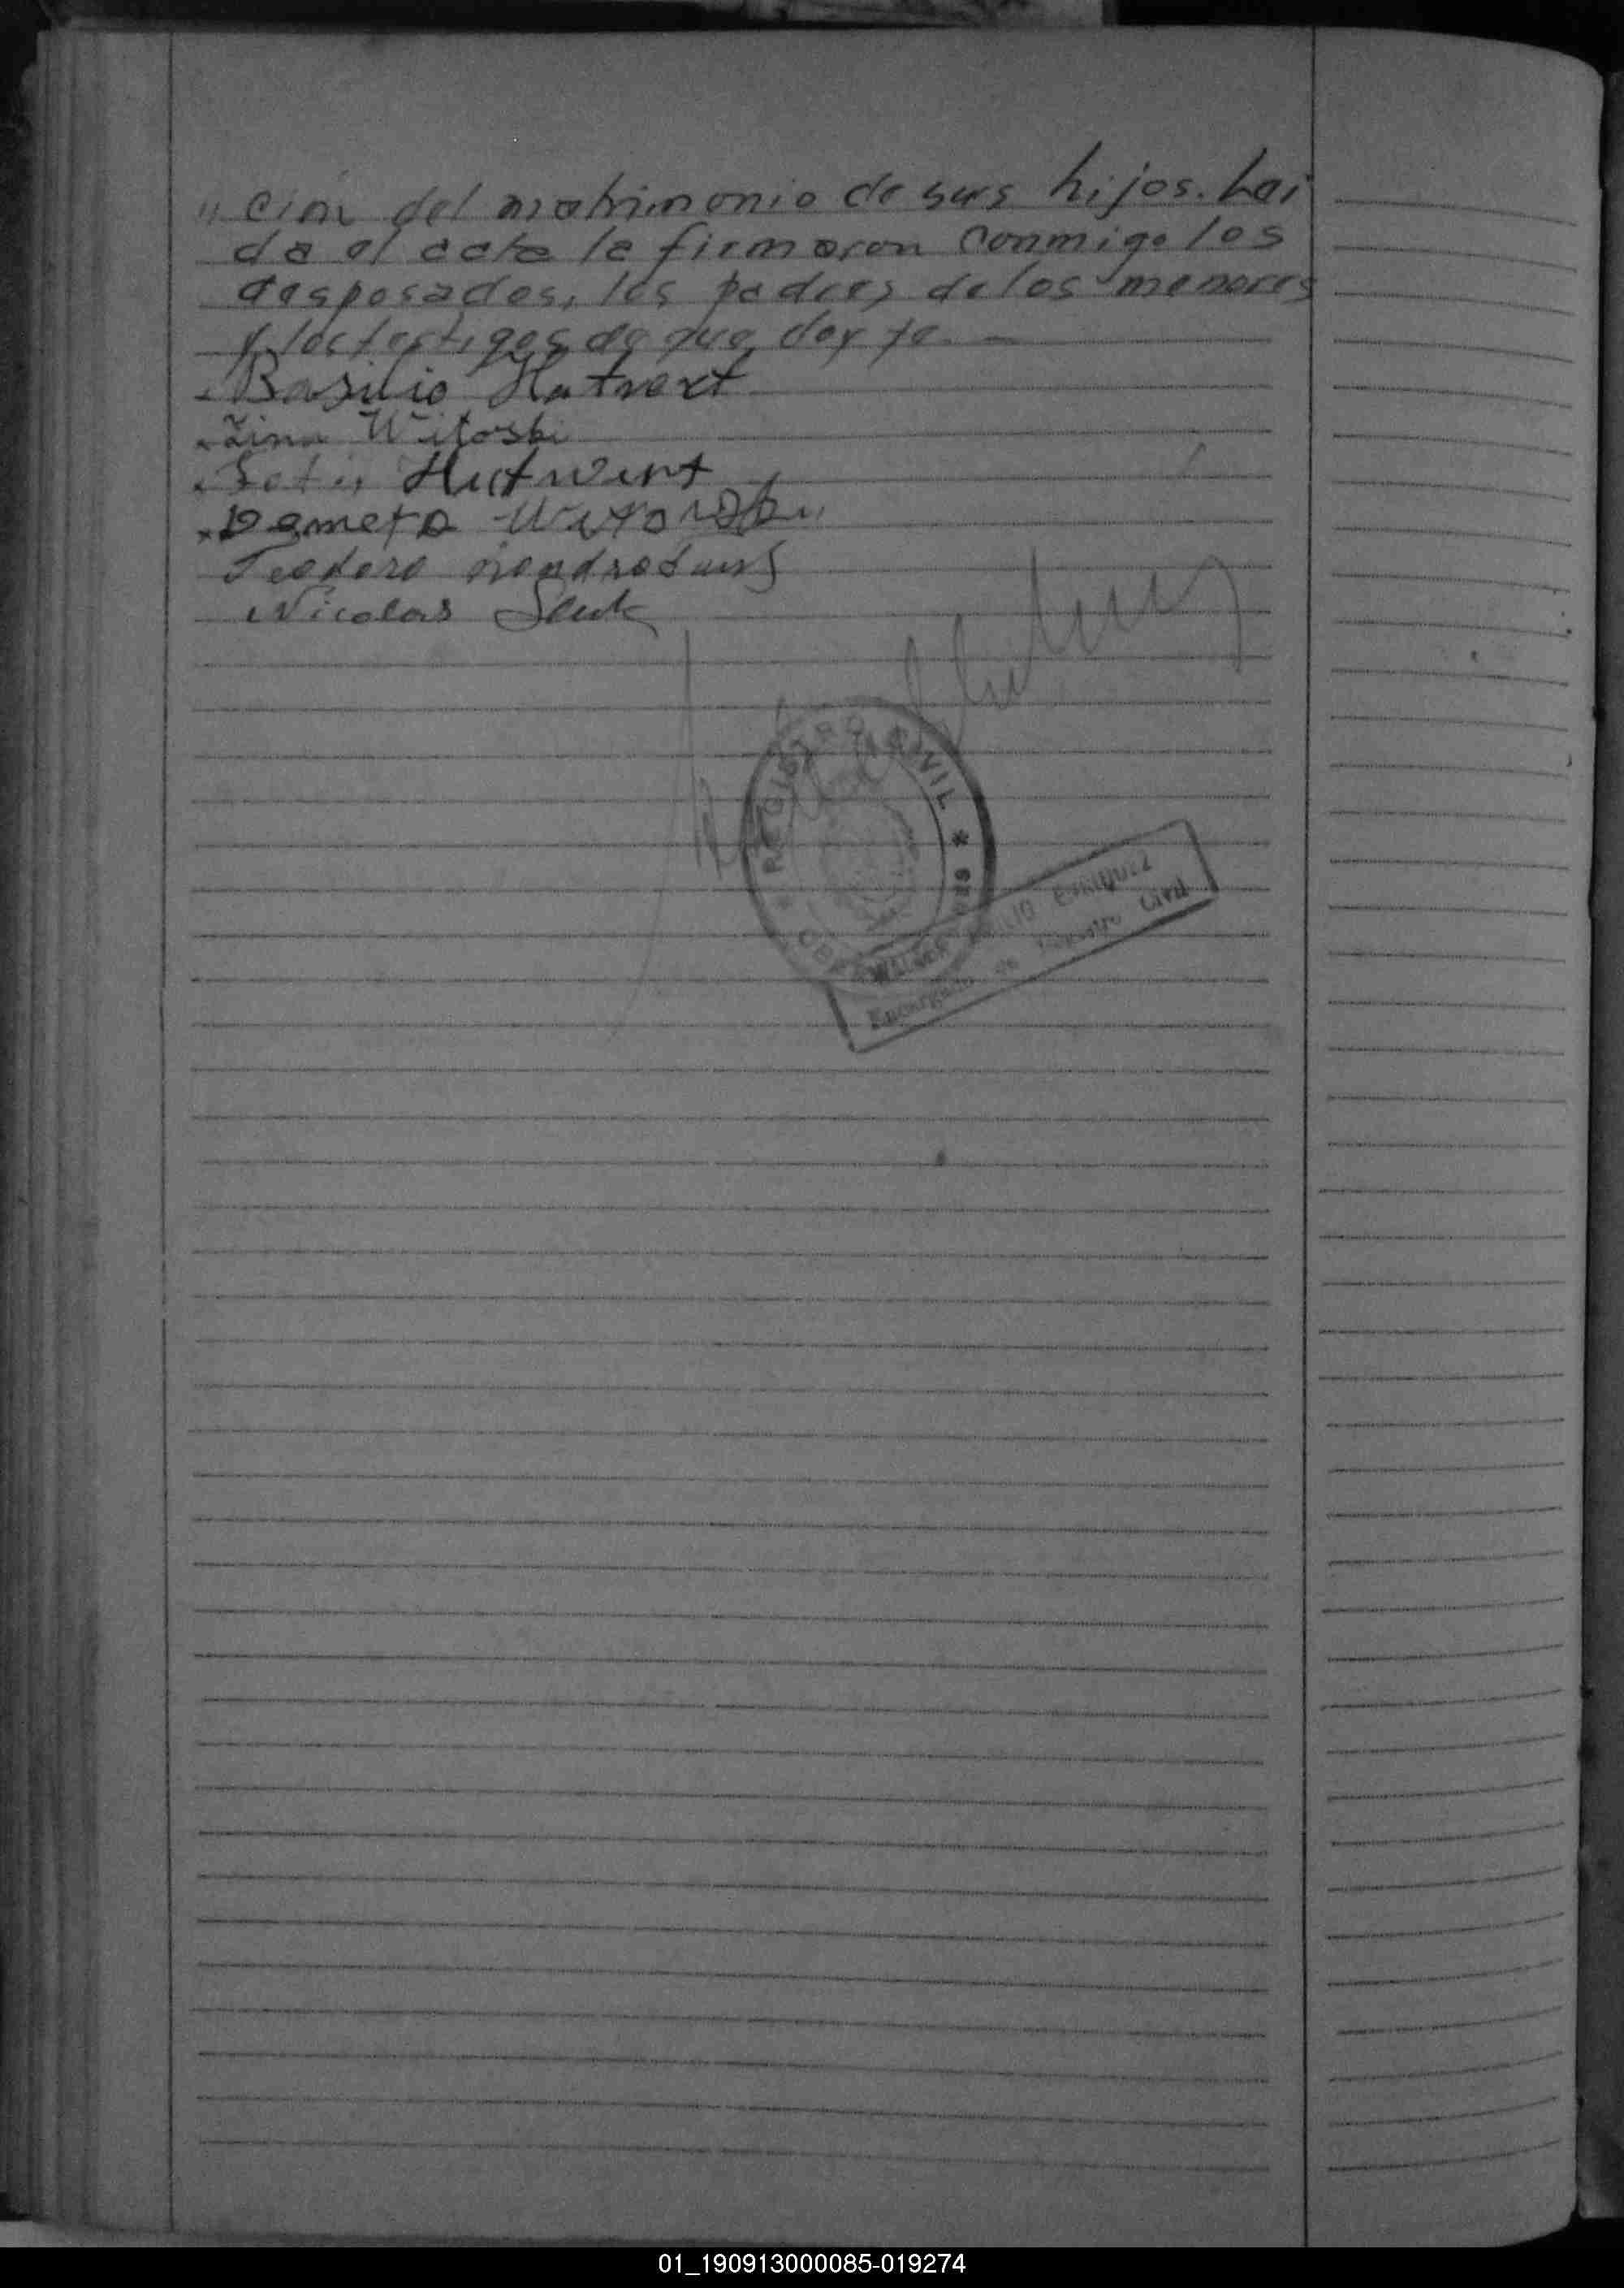 " ción del matrimonio de sus hijos. Lei
da el acta la firmaron conmigo los
desposados, los padres de los menores
y los testigos de que doy fe. -
Basilio Hutwert
Zina Witoski
Hutwert
Demetro Witoski
Teodoro
Nicolas
REGISTRO CIVIL * GRAL
OBERA
WALTER EMILIO ENRIQUEZ
Encargado de Registro Civil
01_190913000085-019274